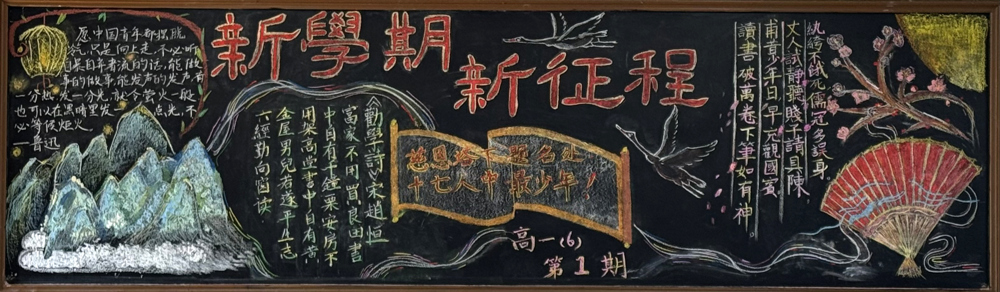 愿中国青年都摆脱
冷气,只是向上走,不必听
自暴自弃者流的话。能做
事的做事,能发声的发声。有
一分热,发一分光,就令萤火一般,
也可以在黑暗里发一点光,不
必等候炬火。
—鲁迅
新學期
新征程
《勸學詩》宋 趙恒
富家不用買良田書
中自有千鍾粟安房不
用架高堂書中自有黃
金屋男兒若遂平生志
六經勤向窗讀
慈恩塔下题名处
十七人中最少年!
高一(6)
第1期
紈絝不餓死儒冠多誤身
丈人試靜聽賤子請具陳
甫昔少年日早充觀國賓
讀書破萬卷下筆如有神。